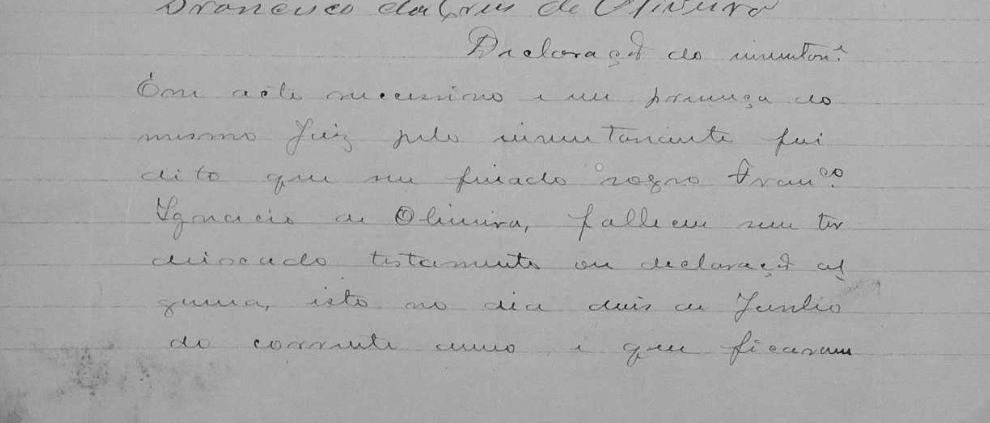 Francisco da Cruz de Oliveira
Declaração do invente.
Em acto successivo e em presença do
mesmo Juiz pelo inventariante foi
dito que seu finado sogro Franco.
Ignacio de Oliveira, falleceu sem ter
deixado testamento ou declaração al
guma, isto no dia dois de Junho
do corrente anno e que ficaram